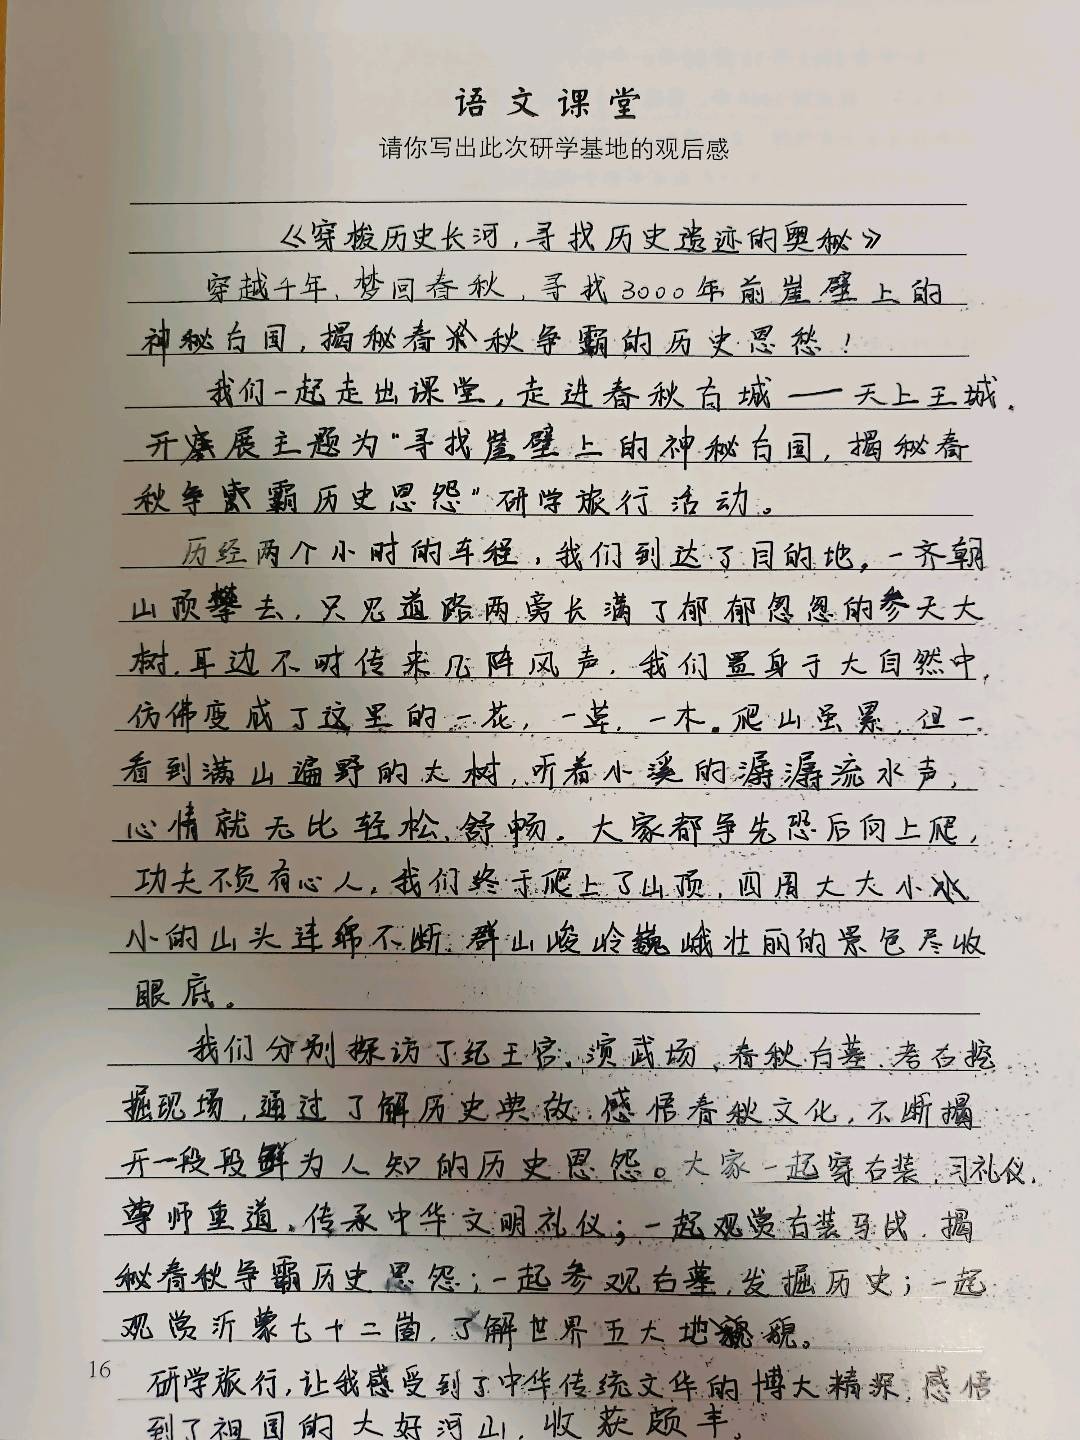 语文课堂
请你写出此次研学基地的观后感
《穿梭历史长河,寻找历史遗迹的奥秘》
穿越千年、梦回春秋,寻找3000年前崖壁上的
神秘古国,揭秘春秋争霸的历史恩愁!
我们一起走出课堂,走进春秋古城——天上王城,
开展主题为"寻找崖壁上的神秘古国,揭秘春
秋争霸历史恩怨"研学旅行活动。
历经两个小时的车程,我们到达了目的地,一齐朝
山顶攀去,只见道路两旁长满了郁郁忽忽的参天大
树,耳边不时传来几阵风声,我们置身于大自然中,
仿佛变成了这里的一花,一草,一木。爬山虽累,但一
看到满山遍野的大树,听着小溪的潺潺流水声,
心情就无比轻松、舒畅。大家都争先恐后向上爬,
功夫不负有心人,我们终于爬上了山顶,四周大大小
小的山头连绵不断,群山峻岭巍峨壮丽的景色尽收
眼底。
我们分别探访了纪王宫、演武场、春秋古墓、考古挖
掘现场,通过了解历史典故,感悟春秋文化,不断揭
开一段段鲜为人知的历史恩怨。大家一起穿古装,习礼仪,
尊师重道,传承中华文明礼仪;一起观赏古装马战,揭
秘春秋争霸历史恩怨;一起参观古墓,发掘历史;一起
观赏沂蒙七十二崮,了解世界五大地貌。
研学旅行,让我感受到了中华传统文华的博大精深,感悟
到了祖国的大好河山,收获颇丰。
16